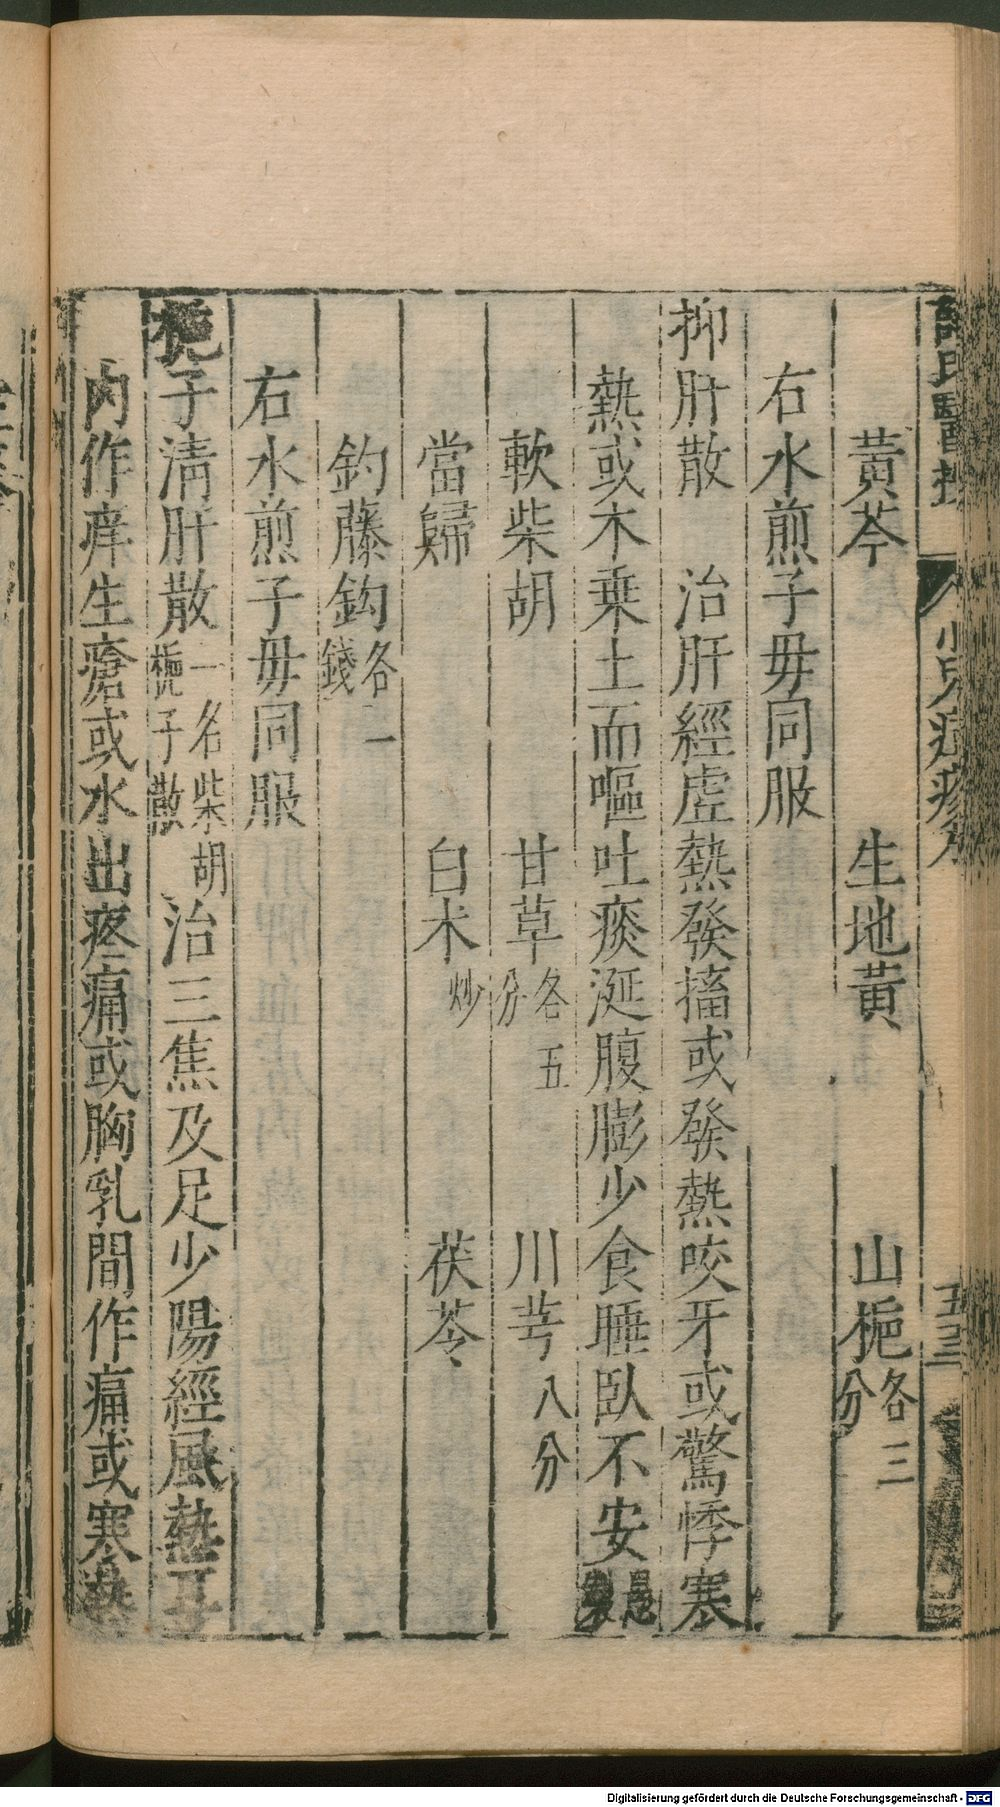 黃芩 生地黃 山梔各三分
右水煎子毋同服
抑肝散 治肝經虛熱發搐或發熱咬牙或驚悸寒
熱或木乗土而嘔吐痰涎腹膨少食睡臥不安愚製
軟柴胡 甘草各五分 川芎八分
當歸 白朮炒 茯苓
釣藤鈎各一錢
右水煎子毋同服
梔子清肝散一名柴胡梔子散治三焦及足少陽經風熱耳
內作痒生瘡或水出疼痛或胸乳間作痛或寒熱
五三
Digitalisierung gefördert durch die Deutsche Forschungsgemeinschaft - DFG